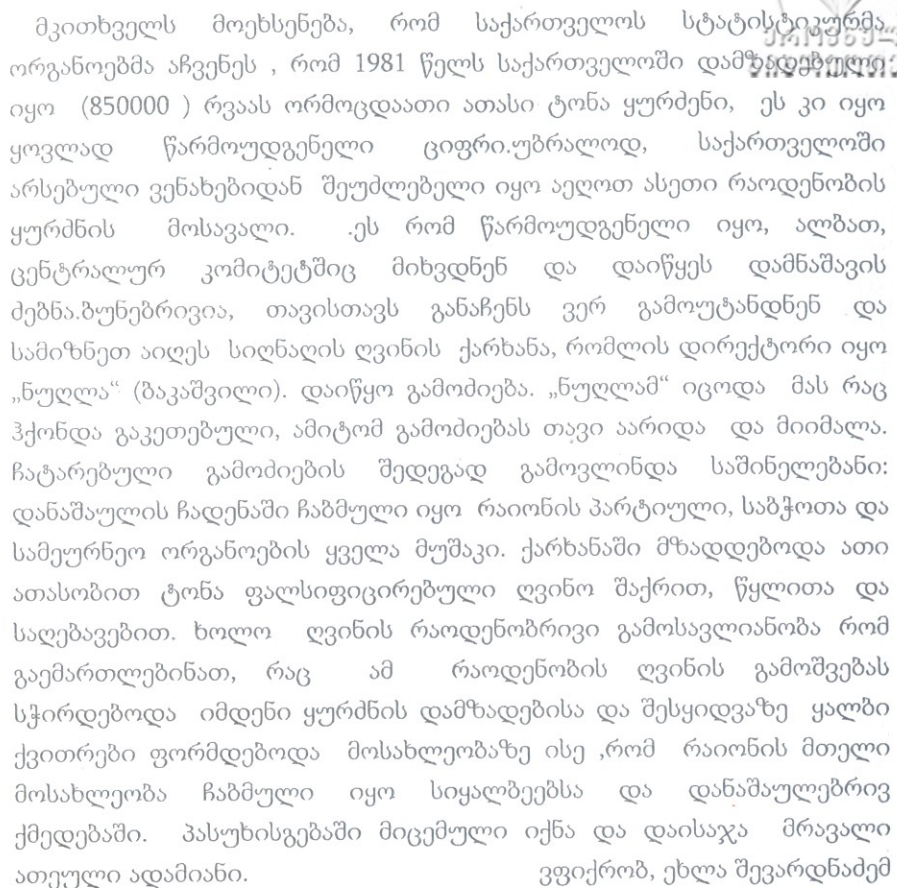 მკითხველს მოეხსენება, რომ საქართველოს სტატისტიკურმა
ორგანოებმა აჩვენეს , რომ 1981 წელს საქართველოში დამზადებული
იყო (850000 ) რვაას ორმოცდაათი ათასი ტონა ყურძენი, ეს კი იყო
ყოვლად წარმოუდგენელი ციფრი.უბრალოდ, საქართველოში
არსებული ვენახებიდან შეუძლებელი იყო აეღოთ ასეთი რაოდენობის
ყურძნის მოსავალი. .ეს რომ წარმოუდგენელი იყო, ალბათ,
ცენტრალურ კომიტეტშიც მიხვდნენ და დაიწყეს დამნაშავის
ძებნა.ბუნებრივია, თავისთავს განაჩენს ვერ გამოუტანდნენ და
სამიზნეთ აიღეს სიღნაღის ღვინის ქარხანა, რომლის დირექტორი იყო
„ნუღლა“ (ბაკაშვილი). დაიწყო გამოძიება. „ნუღლამ“ იცოდა მას რაც
ჰქონდა გაკეთებული, ამიტომ გამოძიებას თავი აარიდა და მიიმალა.
ჩატარებული გამოძიების შედეგად გამოვლინდა საშინელებანი:
დანაშაულის ჩადენაში ჩაბმული იყო რაიონის პარტიული, საბჭოთა და
სამეურნეო ორგანოების ყველა მუშაკი. ქარხანაში მზადდებოდა ათი
ათასობით ტონა ფალსიფიცირებული ღვინო შაქრით, წყლითა და
საღებავებით. ხოლო ღვინის რაოდენობრივი გამოსავლიანობა რომ
გაემართლებინათ, რაც ამ რაოდენობის ღვინის გამოშვებას
სჭირდებოდა იმდენი ყურძნის დამზადებისა და შესყიდვაზე ყალბი
ქვითრები ფორმდებოდა მოსახლეობაზე ისე ,რომ რაიონის მთელი
მოსახლეობა ჩაბმული იყო სიყალბეებსა და დანაშაულებრივ
ქმედებაში. პასუხისგებაში მიცემული იქნა და დაისაჯა მრავალი
ათეული ადამიანი. ვფიქრობ, ეხლა შევარდნაძემ